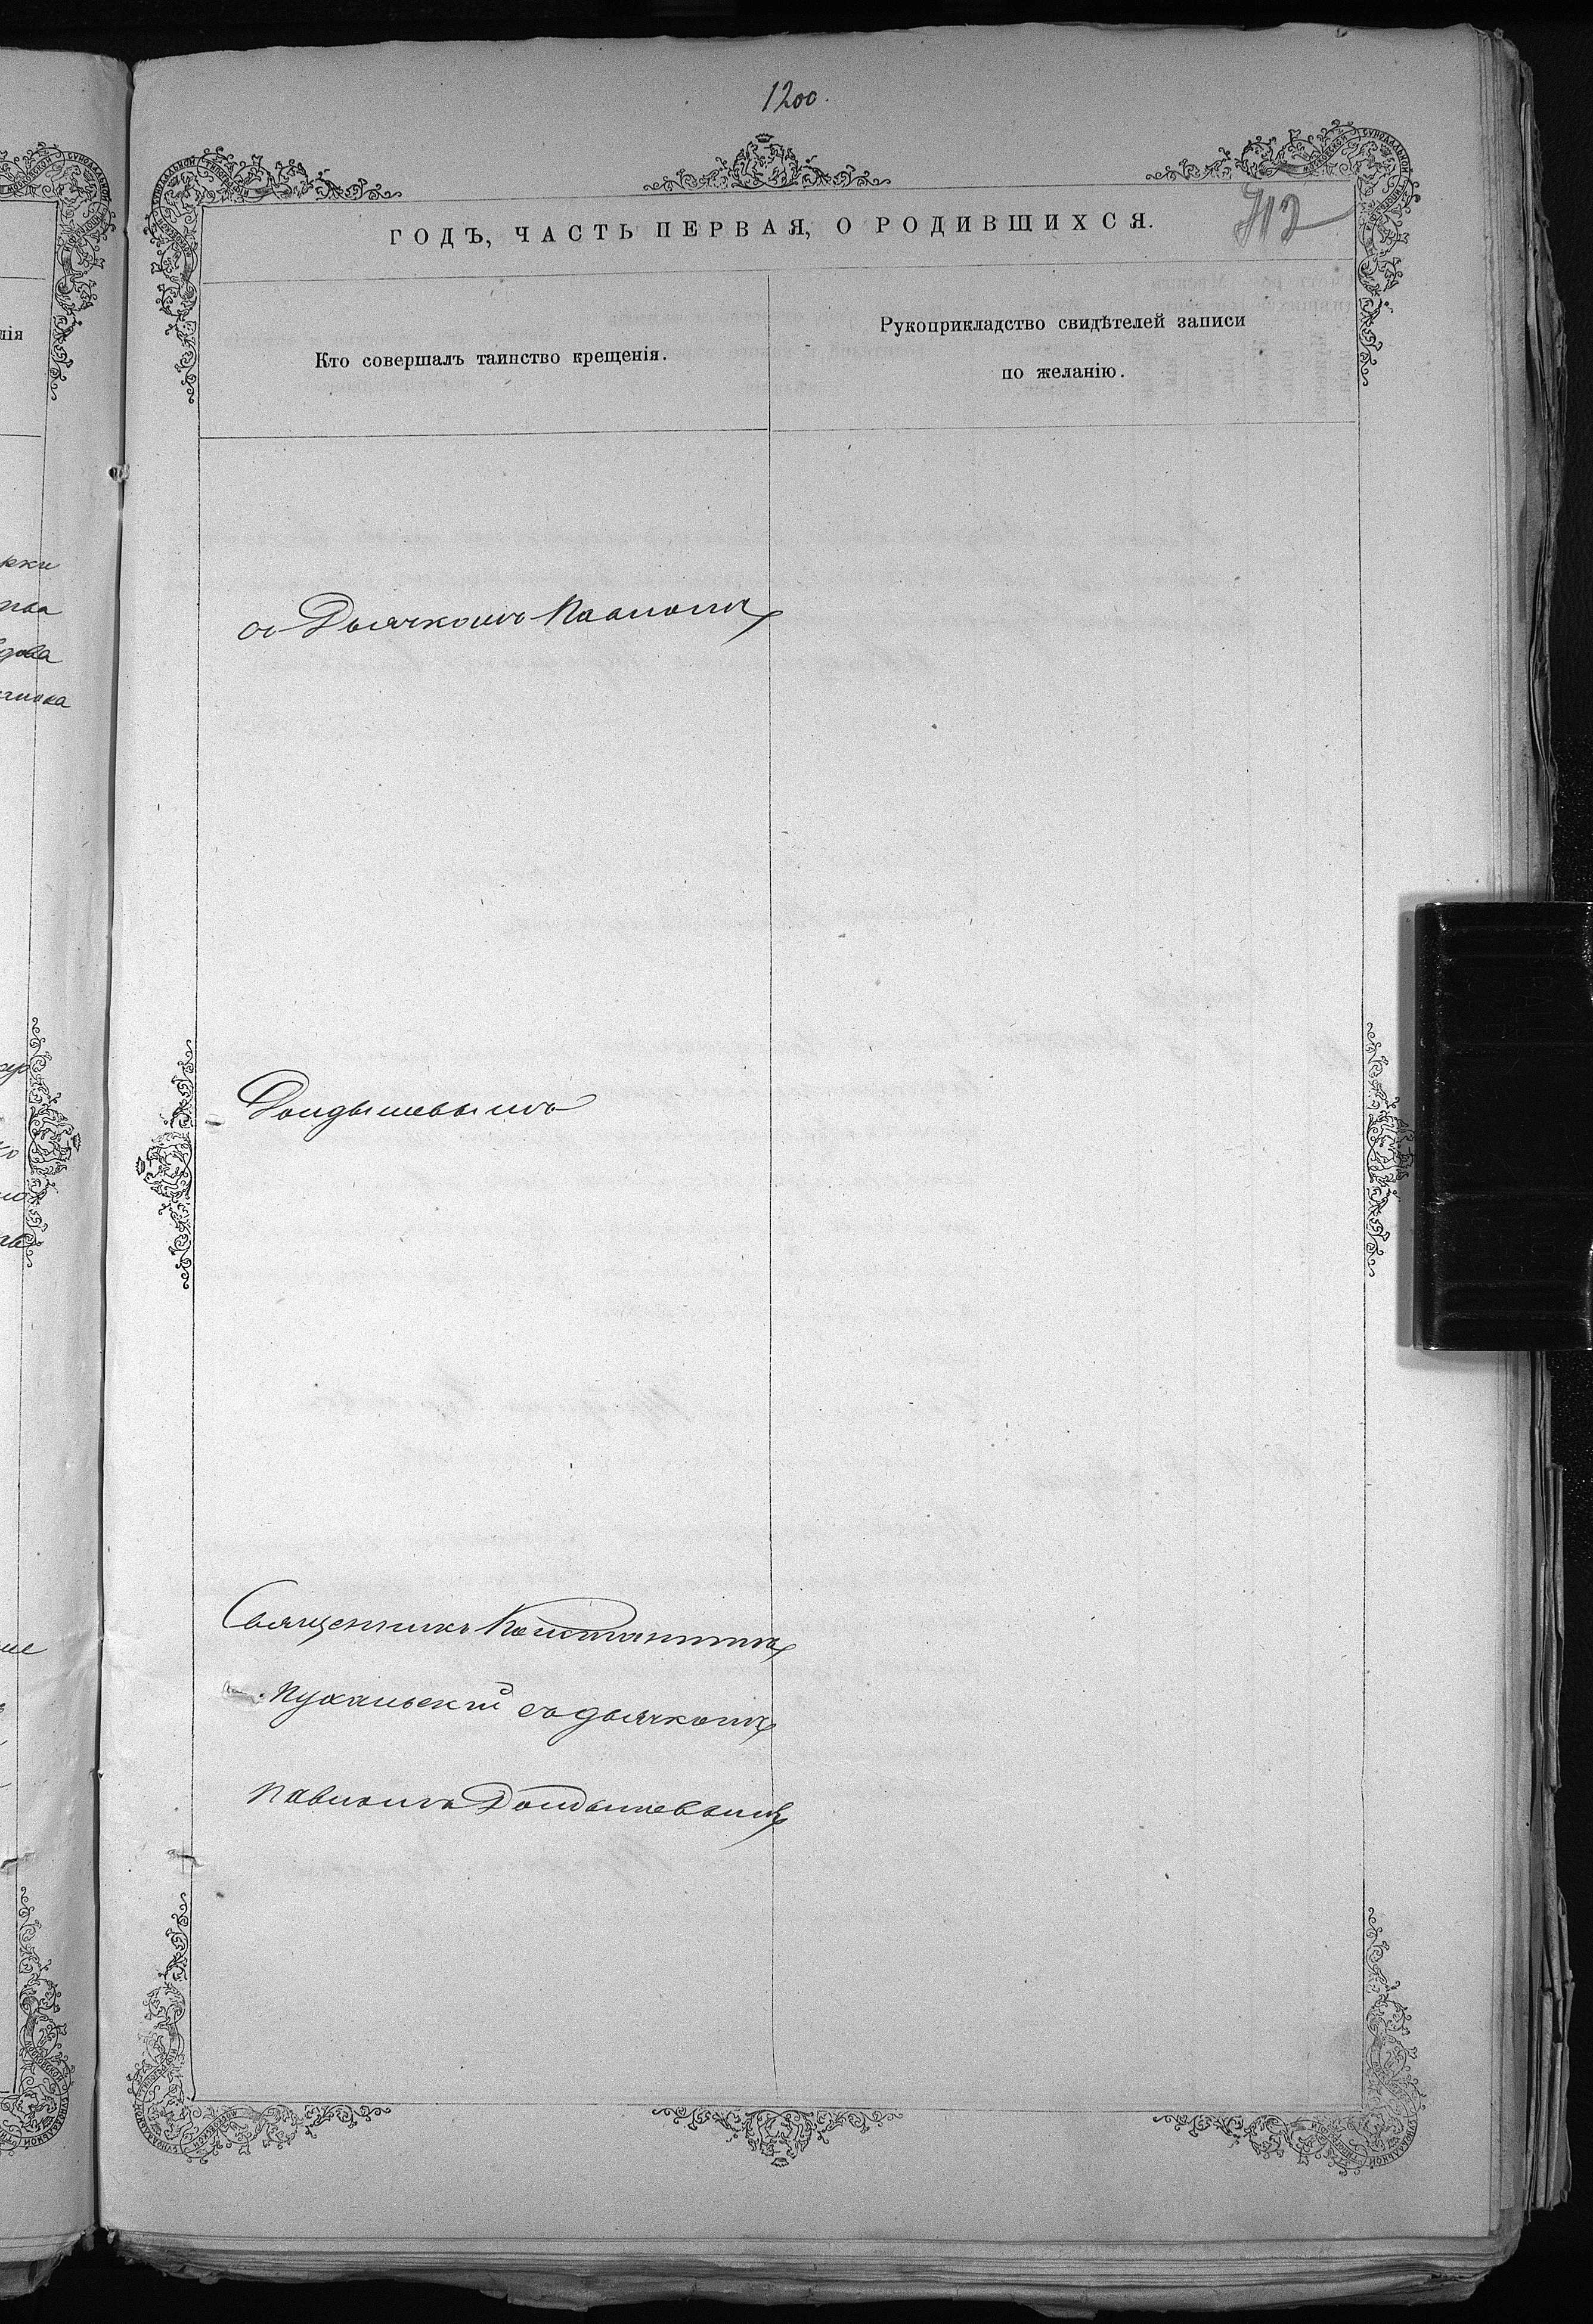 1200.
712
ГОДЪ, ЧАСТЬ ПЕРВАЯ, О РОДИВШИХСЯ.
Кто совершалъ таинство крещенія.
Рукоприкладство свидѣтелей записи
по желанію.
съ Дьячкомъ Павломъ
Дондышевымъ
Священникъ Константинъ
Пухальскій съ дьячкомъ
Павломъ Дондышевымъ